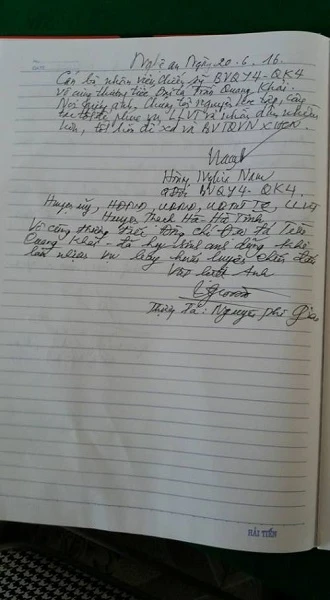 Nghệ an Ngày 20.6.16.
Cán bộ nhân viên chiến sỹ BVQY4-QK4
Vô cùng thương tiếc Đại tá Trần Quang Khải.
Noi gương anh, Chúng tôi nguyện học tập, công
tác tốt để phục vụ LLVT và nhân dân nhiều
hơn, tốt hơn để XD và BVTQVN XHCN.
Hồng Nam
GĐ BVQY4-QK4.
Huyện ủy, HĐND, UBND, UBMTTQ, LLVT
Huyện Thạch Hà - Hà Tĩnh
Vô cùng thương tiếc đồng chí Đại tá Trần
Quang Khải - đã hy sinh anh dũng khi
làm nhiệm vụ bay huấn luyện chiến đấu
Vĩnh biệt Anh
Thượng tá: Nguyễn Phi
HẢI TIẾN